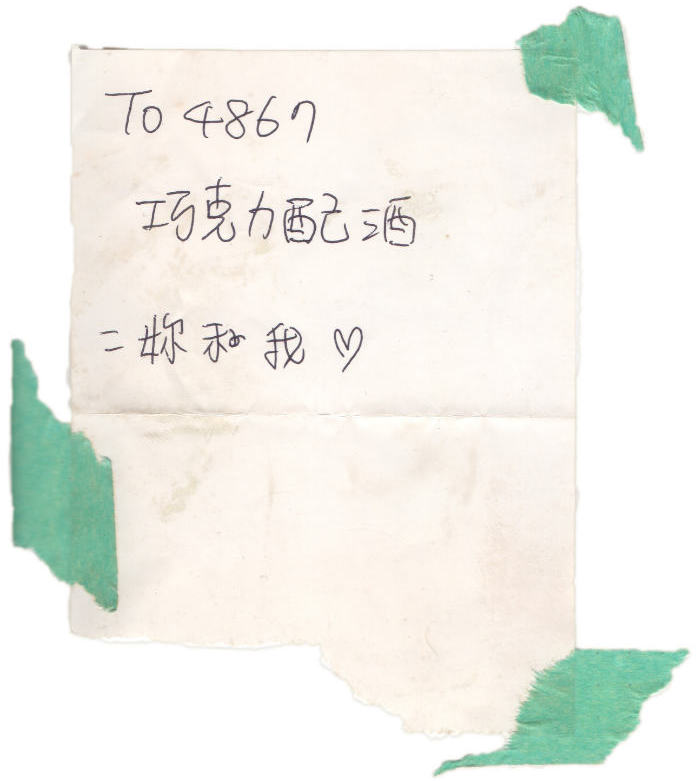 To 4867
巧克力配酒
= 妳和我♡